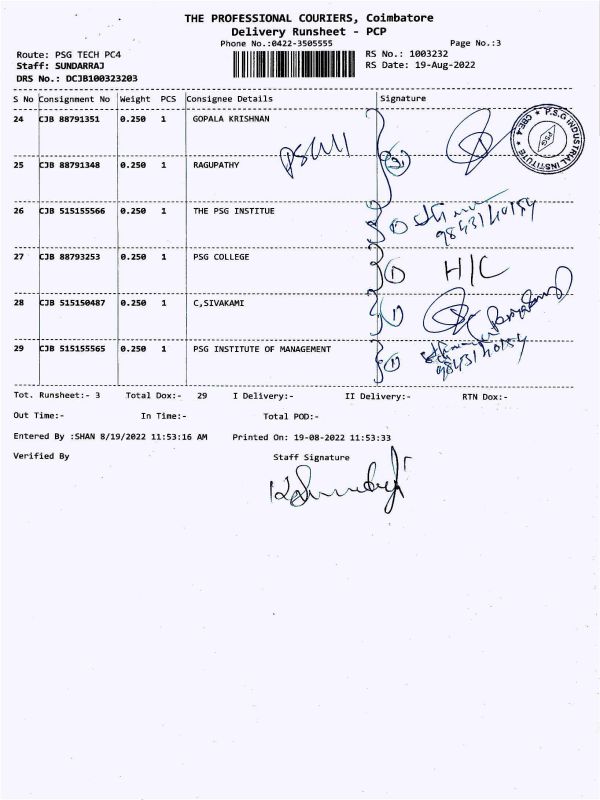 THE PROFESSIONAL COURIERS, Coimbatore
Delivery Runsheet - PCP
Phone No.:0422-3505555 Page No.:3
Route: PSG TECH PC4 RS No.: 1003232
Staff: SUNDARRAJ RS Date: 19-Aug-2022
DRS No.: DCJB100323203
S No Consignment No Weight PCS Consignee Details Signature
24 CJB 88791351 0.250 1 GOPALA KRISHNAN
P.S.G INDUSTRIAL INSTITUTE ★ CBE-4 ★
PSG
25 CJB 88791348 0.250 1 RAGUPATHY
26 CJB 515155566 0.250 1 THE PSG INSTITUE 1
9843140154
27 CJB 88793253 0.250 1 PSG COLLEGE 1 H/C
28 CJB 515150487 0.250 1 C,SIVAKAMI 1
29 CJB 515155565 0.250 1 PSG INSTITUTE OF MANAGEMENT 1
9843140154
Tot. Runsheet:- 3 Total Dox:- 29 I Delivery:- II Delivery:- RTN Dox:-
Out Time:- In Time:- Total POD:-
Entered By :SHAN 8/19/2022 11:53:16 AM Printed On: 19-08-2022 11:53:33
Verified By Staff Signature